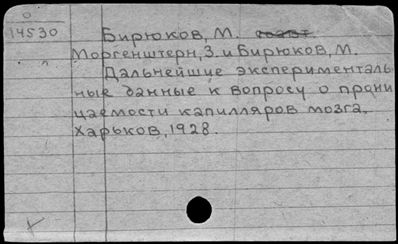 О
14530 Бирюков, М. соавт.
Моргенштерн, З. и Бирюков, М.
Дальнейшие эксперименталь
ные данные к вопросу о прони
цаемости капилляров мозга.
Харьков, 1928.